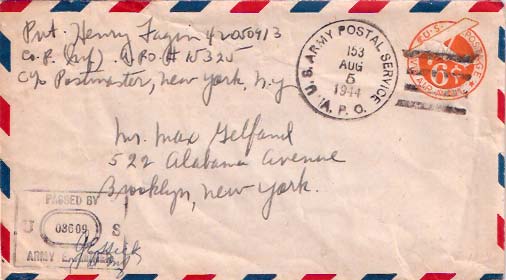 Pvt. Henry Fagin 42050913
Co. P. (Inf) APO # 15325
c/o Postmaster, New York, N.Y.
U.S. ARMY POSTAL SERVICE
153
AUG
5
1944
A.P.O.
U.S. POSTAGE
6¢
AIR MAIL
Mr. Max Gelfand
522 Alabama Avenue
Brooklyn, New York.
PASSED BY
U 08609 S
ARMY EXAMINER